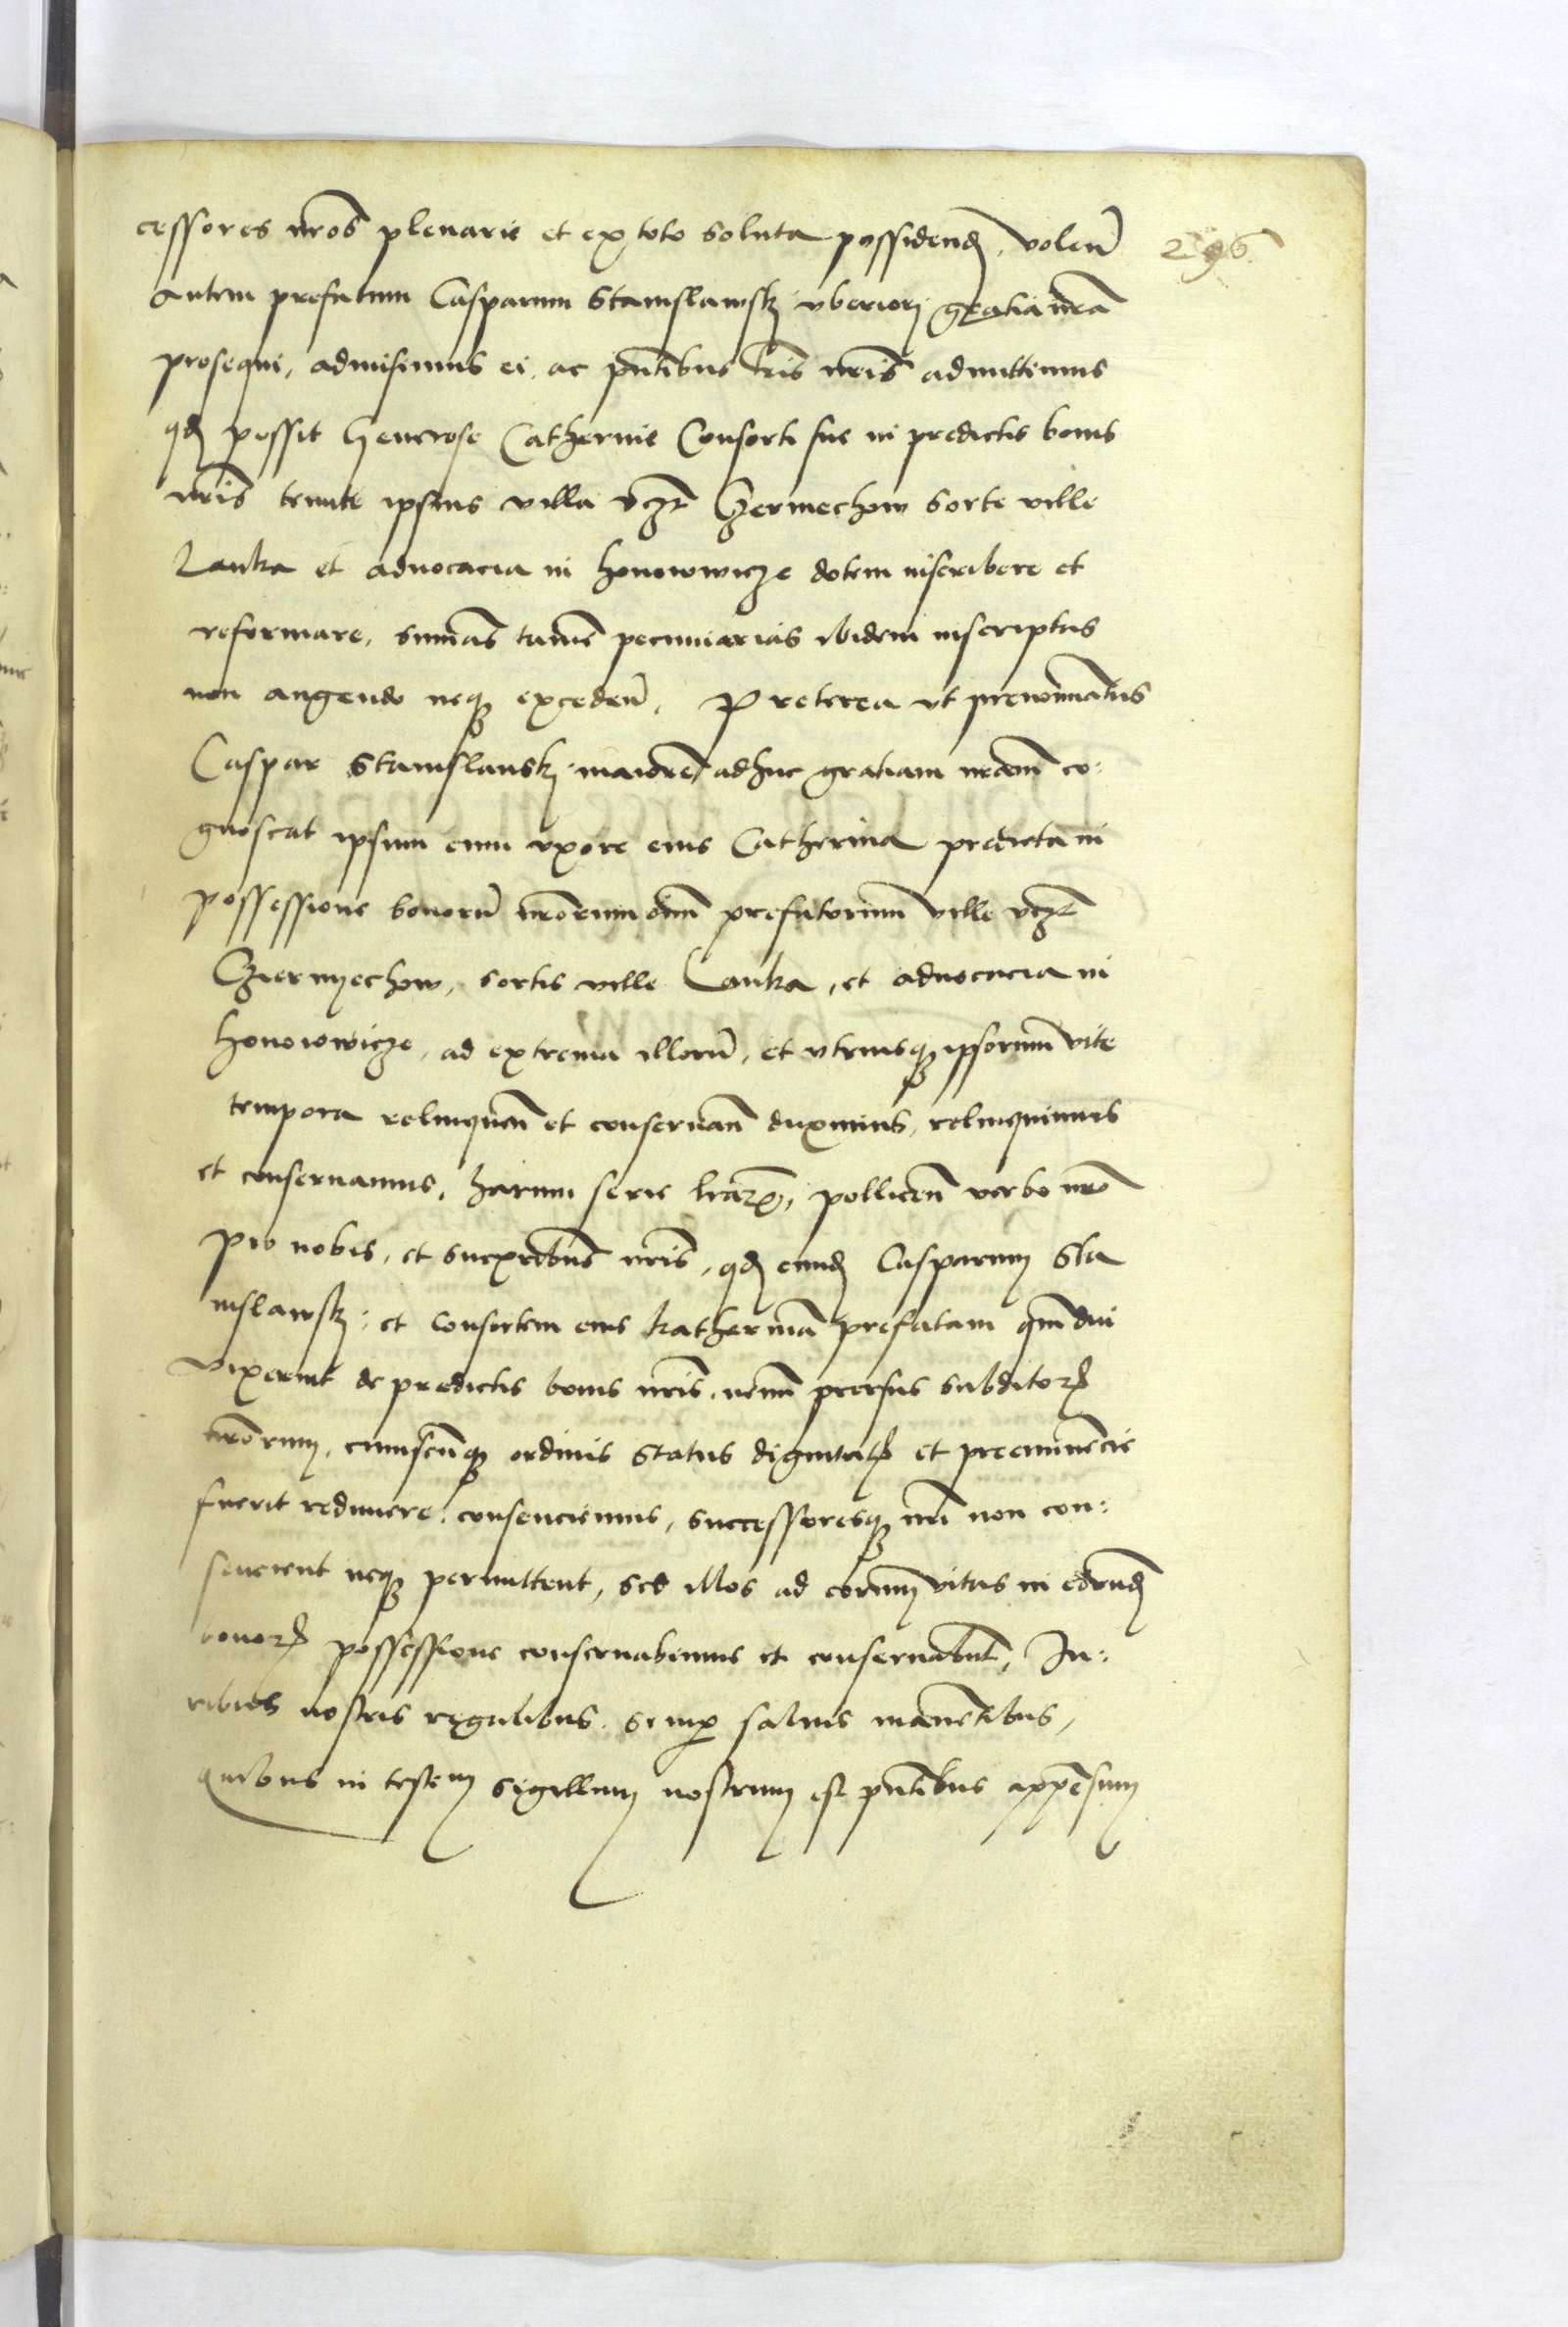 cessores nros plenarie et ex toto soluta possidend, volen
autem prefatum Casparum Stanislawskj vberiorj gratia nra
prosequi, admisimus ei, ac pntibus lris nris admittimus
qd possit Generose Catherine Consorti sue in predictis bonis
nris tenute ipsius villa vczt Czermechow sorte ville
Lanka et aduocacia in honorowicze dotem inscribere et
reformare, summas tamen pecuniarias ibidem inscriptas
non augendo neqz exceden, Preterea vt prenominatus
Caspar Stanislauskj maiorem adhuc gratiam nram co:
gnoscat ipsum cum vxore eius Catherina predicta in
possessione bonoru nrorum omn prefatorum ville vczt
Cziernyechow, sortis ville Lanka, et aduocacia in
honorowicze, ad extrema illoru, et vtriusqz ipsorum vite
tempora relinquen et conseruan duximus, relinquimus
et conseruamus, harum serie lrarz, pollicen verbo nro
pro nobis, et sucxoribus nris, qd eund Casparum Sta
nislawskj et Consortem eius katherina prefatam qmdiu
vixerint de predictis bonis nris nemini prorsus subditorz
nrorum, cuiuscunqz ordinis status dignitatis et preeminencie
fuerit redimere consenciemus, successoresqz nri non con:
sencient neqz permittent, sed illos ad eorum vitas in eorund
bonorz possessione conseruabimus et conseruabunt, Iu:
ribus nostris regalibus semp saluis manentibus,
quibus in testem sigillum nostrum est pntibus appensum
296